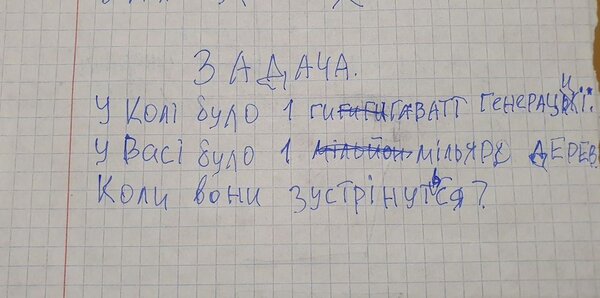 ЗАДАЧА.
У Колі було 1 гигигигаватт генерації.
У Васі було 1 мільйон мільярд дерев
Коли вони зустрінуться?